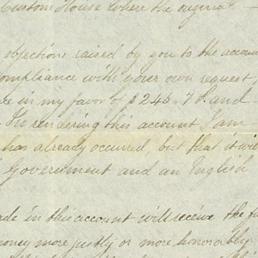 Custom House where the original
objections raised by you to the account
compliance with your own request,
in my favor of $245.7
In rendering this account I am
has already occurred, but that it will
Government and an English
in this account will receive the
money more justly or more honorably